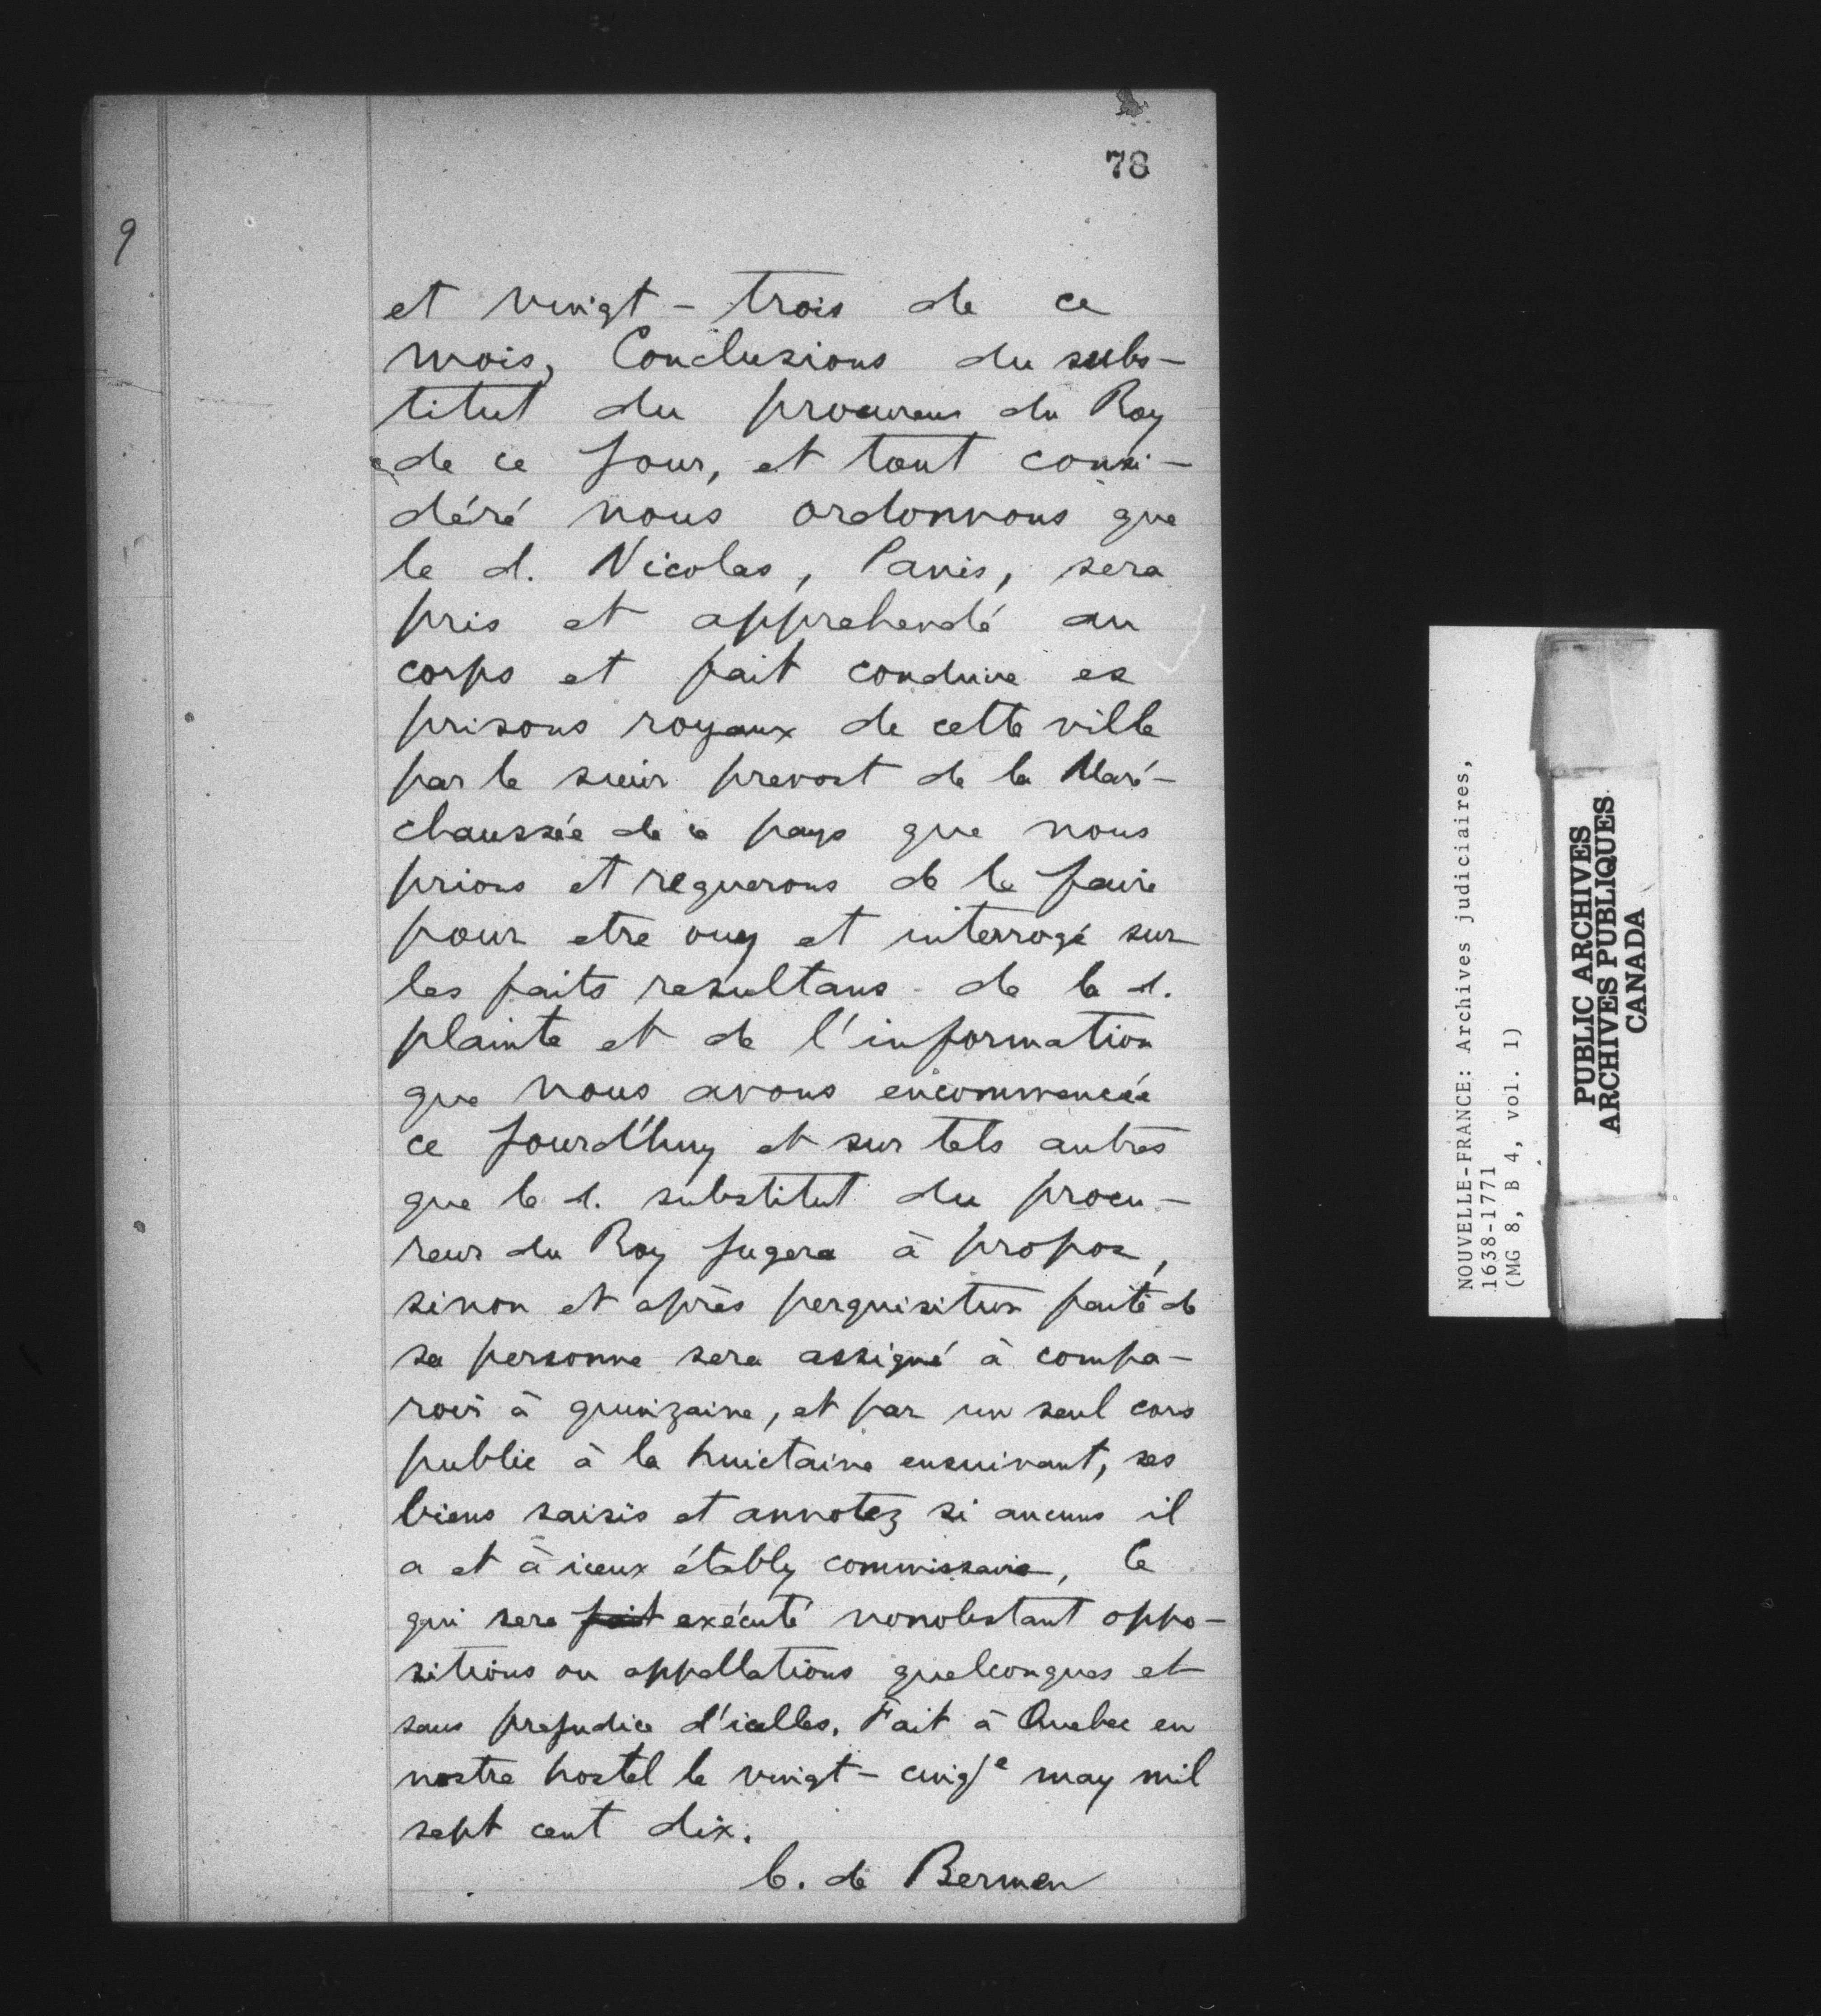 78
9
et vingt-trois de ce
mois, Conclusions du subs-
titut du procureur du Roy
de ce jour, et tout consi-
déré nous ordonnons que
le d. Nicolas, Panis, sera
pris et apprehendé au
corps et fait conduire es
prisons royaux de cette ville
par le sieur prevost de la Maré-
chaussée de ce pays que nous
prions et requerons de le faire
pour etre ouy et interrogé sur
les faits resultans de la d.
plainte et de l'information
que nous avons encommencée
ce jourd'huy et sur tels autres
que le d. substitut du procu-
reur du Roy jugera à propos,
sinon et après perquisition faite de
sa personne sera assigné à compa-
roir à quinzaine, et par un seul cris
public à la huictaine ensuivant, ses
biens saisis et annotez si aucuns il
a et à iceux étably commissaire, ce
qui sera fait exécuté nonobstant oppo-
sitions ou appellations quelconques et
sans prejudice d'icelles. Fait à Quebec en
nostre hostel le vingt-cinqe may mil
sept cent dix.
C. de Bermen
NOUVELLE-FRANCE: Archives judiciaires,
1638-1771
(MG 8, B 4, vol. 1)
PUBLIC ARCHIVES
ARCHIVES PUBLIQUES
CANADA